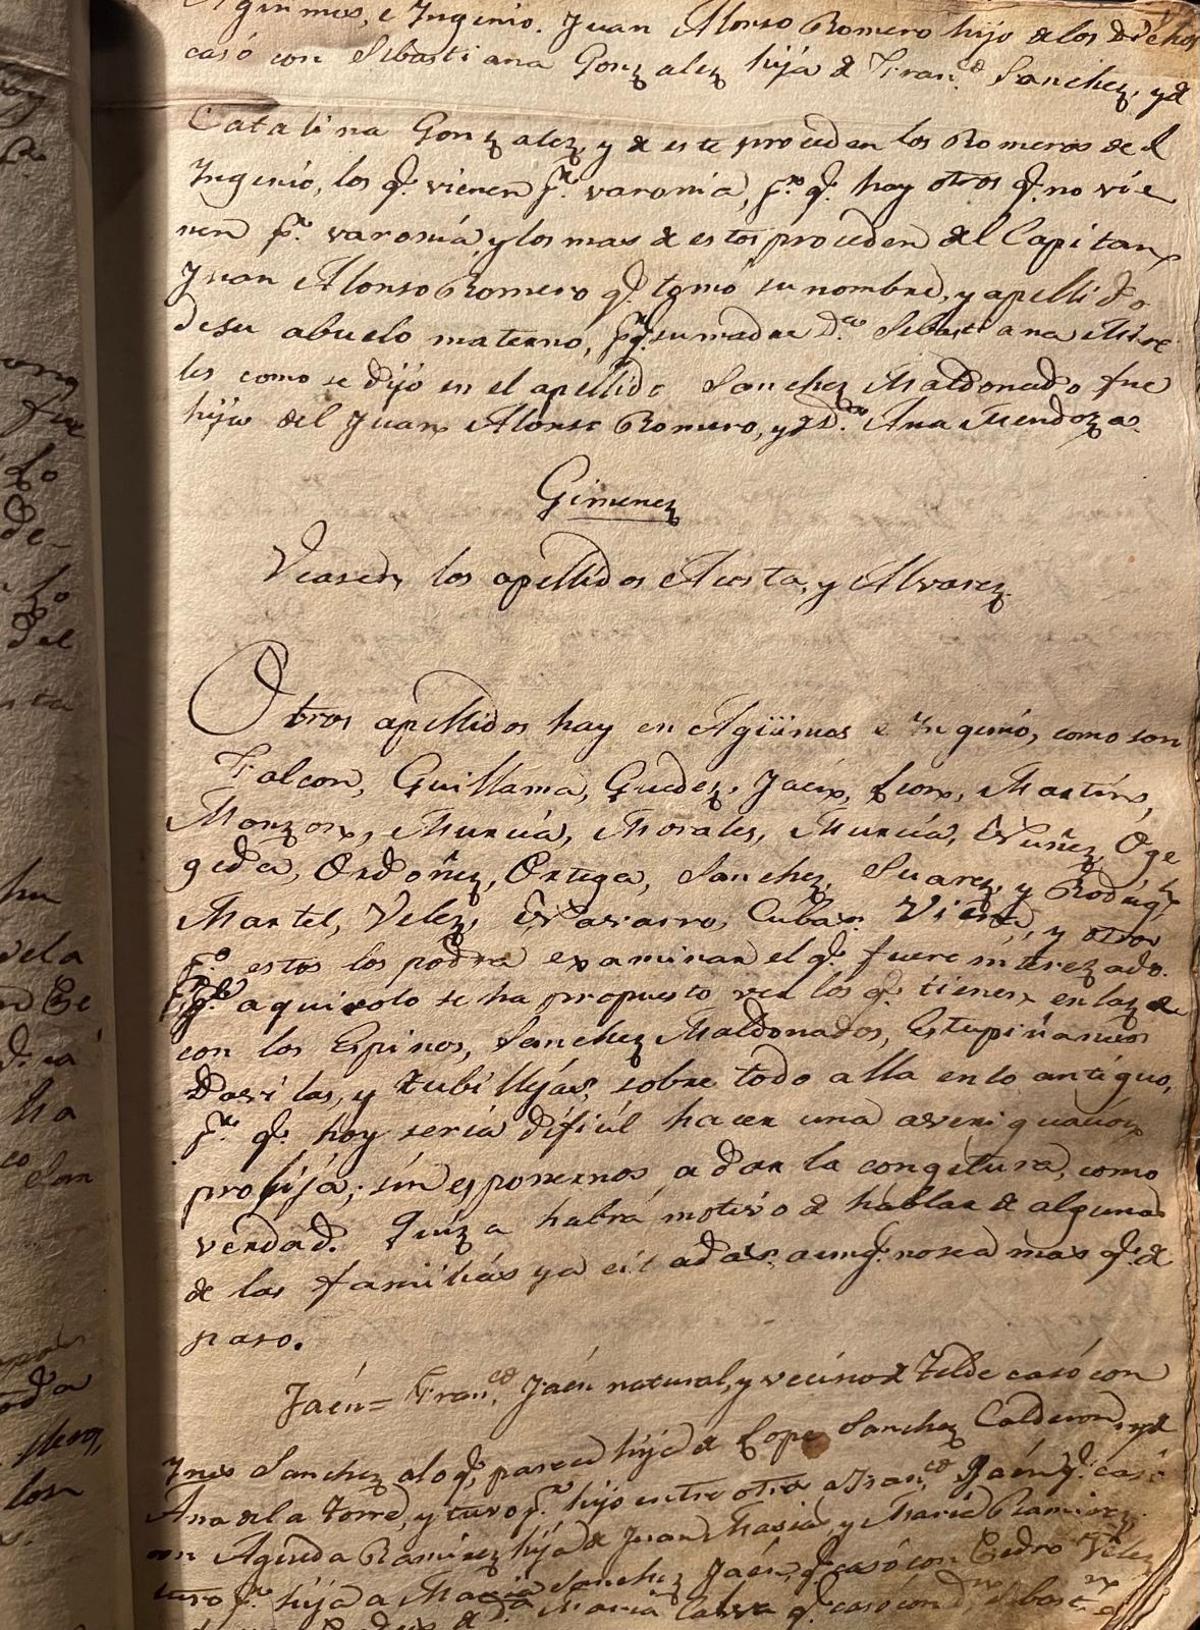 Agüimes, e Ingenio. Juan Alonso Romero hijo de los dichos
casó con Sebastiana Gonzalez hija de Fran.co Sanchez, y de
Catalina Gonzalez, y de este proceden los Romeros del
Ingenio, los q.e vienen p.r varonia, p.r q.e hay otros q.e no vie
nen p.r varonía, y los mas de estos proceden del Capitan
Juan Alonso Romero q.e tomó su nombre, y apellido
de su abuelo materno, p.q.e su madre D.a Sebastiana Mire
les como se dijó en el apellido Sanchez Maldonado fue
hija del Juan Alonso Romero, y de D.a Ana Mendoza.
Gimenez
Veasen los apellidos Acosta, y Alvarez.
Otros apellidos hay en Agüimes e Ingenió, como son
Falcon, Guillama, Guedez, Jaén, Leon, Martin,
Monzon, Murcía, Morales, Murcía, Nuñez, Oge
geda, Ordoñez, Ortega, Sanchez, Suarez, y Rodrig.z
Martel, Velez, Navarro, Cubas, Viera, y otros
p.o estos los podra examinar el q.e fuere interezado.
p.q.e aqui solo se ha propuesto ver los q.e tienen enlaze
con los Espinos, Sanchez Maldonados, Estupiñanes
Davilas, y Zubillejas, sobre todo alla en lo antiguo,
p.r q.e hoy seria difícil hacer una averiguación
prolija; sin esponernos a dar la congetura, como
verdad. Quiza habrá motivo de hablar de algunas
de las familias ya citadas aunq.e no sea mas q.e de
paso.
Jaén = Fran.co Jaén natural, y vecino de Telde casó con
Ines Sanchez a lo q.e parece hija de Lope Sanchez Calderon, y de
Ana de la Torre, y tuvo p.r hijo entre otros a Fran.co Jaén q.e casó
con Agueda Ramirez hija de Juan Masias, y Maria Ramirez
tuvo p.r hija a Maria Sanchez Jaén, q.e casó con Pedro Velez
Maria Calva q.e casó con D.n Sebast.n